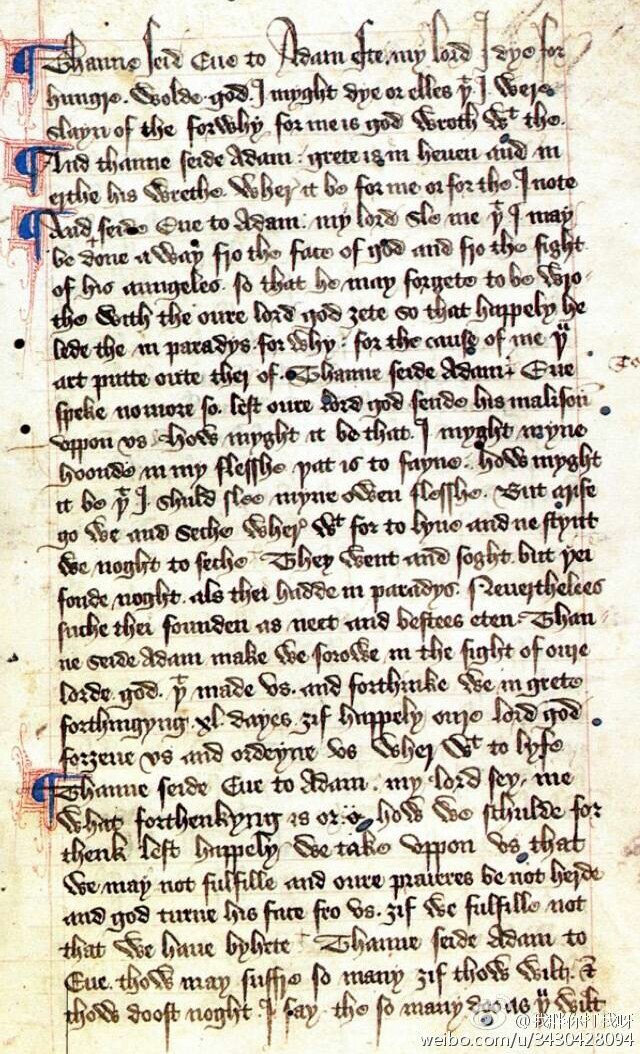 Thanne seid Eue to Adam efte. my lord I dye for
hungre. wolde god. I myght dye or elles þͭ I. were
slayn of the forwhy for me is god wroth wͭ the.
And thanne seide Adam. grete is in heuen and in
erthe his wrethe. wher it be for me or for the I note
And seide Eue to Adam. my lord sle me þͭ I may
be done a way fro the face of god and fro the sight
of his aungeles. so that he may forgete to be wro-
the with the oure lord god ȝete so that happely he
lede the in paradys. for why. for the cause of me þͧ
art putte oute ther of. Thanne seide Adam. Eue
speke no more so. lest oure lord god sende his malisoun
vppon vs. how myght it be that. I myght myne
hoonde in my flesshe þat is to sayne. how myght
it be þͭ I. shuld slee myne owen flesshe. But arise
go we and seche wher wͭ for to lyue and ne stynt
we noght to seche They went and soght. but þei
fonde noght. als thei hadde in paradys. Neuerthelees
suche thei founden as neet and bestees eten. Than
ne seide Adam make we sorowe in the sight of oure
lorde god. þͭ made vs. and forthinke we in grete
forthingyng. xl. dayes. ȝif happely oure lord god
forȝeue vs and ordeyne vs wher wͭ to lyfe
Thanne seide Eue to Adam. my lord sey me
what forthenkyng is or how we schulde for
thenk lest happely we take vppon vs that
we may not fulfille and oure praieres be not herde
and god turne his face fro vs. ȝif we fulfille not
that we haue byhete Thanne seide Adam to
Eue. thow may suffre so many ȝif thow wilt. &
thows doost noght. I say the so many þͧ wilt
@我伴你打我呀
weibo.com/u/3430428094